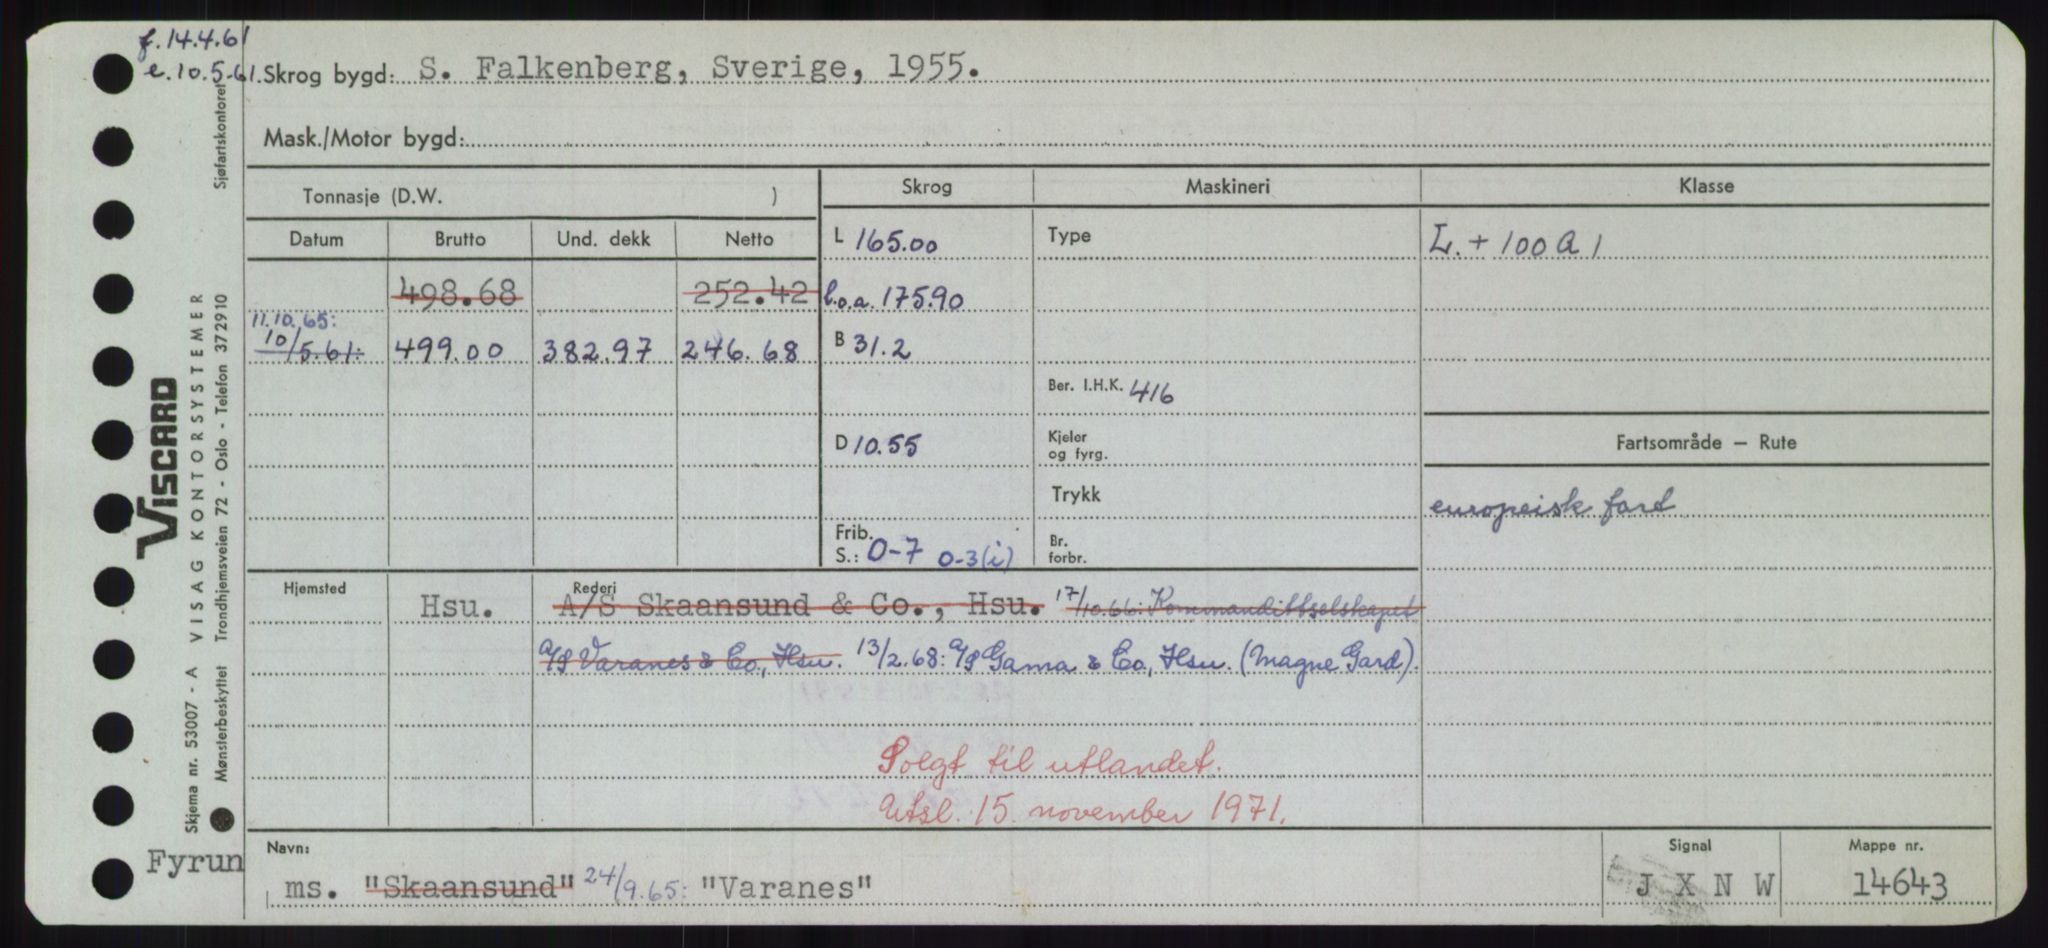 f. 14.4.61
e. 10.5.61. Skrog bygd: S. Falkenberg, Sverige, 1955.
Mask./Motor bygd:
Tonnasje (D.W. )
Skrog Maskineri Klasse
Datum Brutto Und. dekk Netto
L 165.00 Type L. + 100 A 1
498.68 252.42 l.o.a. 175.90
11.10.65:
10/5.61: 499.00 382.97 246.68 B 31.2
Ber. I.H.K. 416
D 10.55 Kjeler og fyrg. Fartsområde – Rute
Trykk europeisk fart
Frib. S.: 0-7 0-3(i) Br. forbr.
Hjemsted Rederi
Hsu. A/S Skaansund & Co., Hsu. 17/10.66: Kommandittselskapet
A/S Varanes & Co., Hsu. 13/2.68: A/S Gama & Co., Hsu. (Magne Gard).
Solgt til utlandet.
Utsl. 15. november 1971.
Navn: Signal Mappe nr.
Fyrun
ms. "Skaansund" 24/9.65: "Varanes" J X N W 14643
VISCARD
Skjema nr. 53007 - A VISAG KONTORSYSTEMER
Mønsterbeskyttet Trondhjemsveien 72 - Oslo - Telefon 372910 Sjøfartskontoret